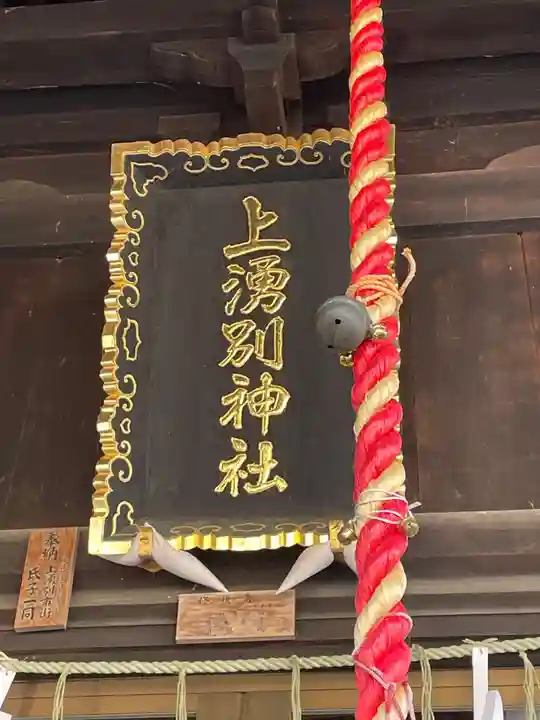 上湧別神社
奉納 上湧別市街
氏子一同